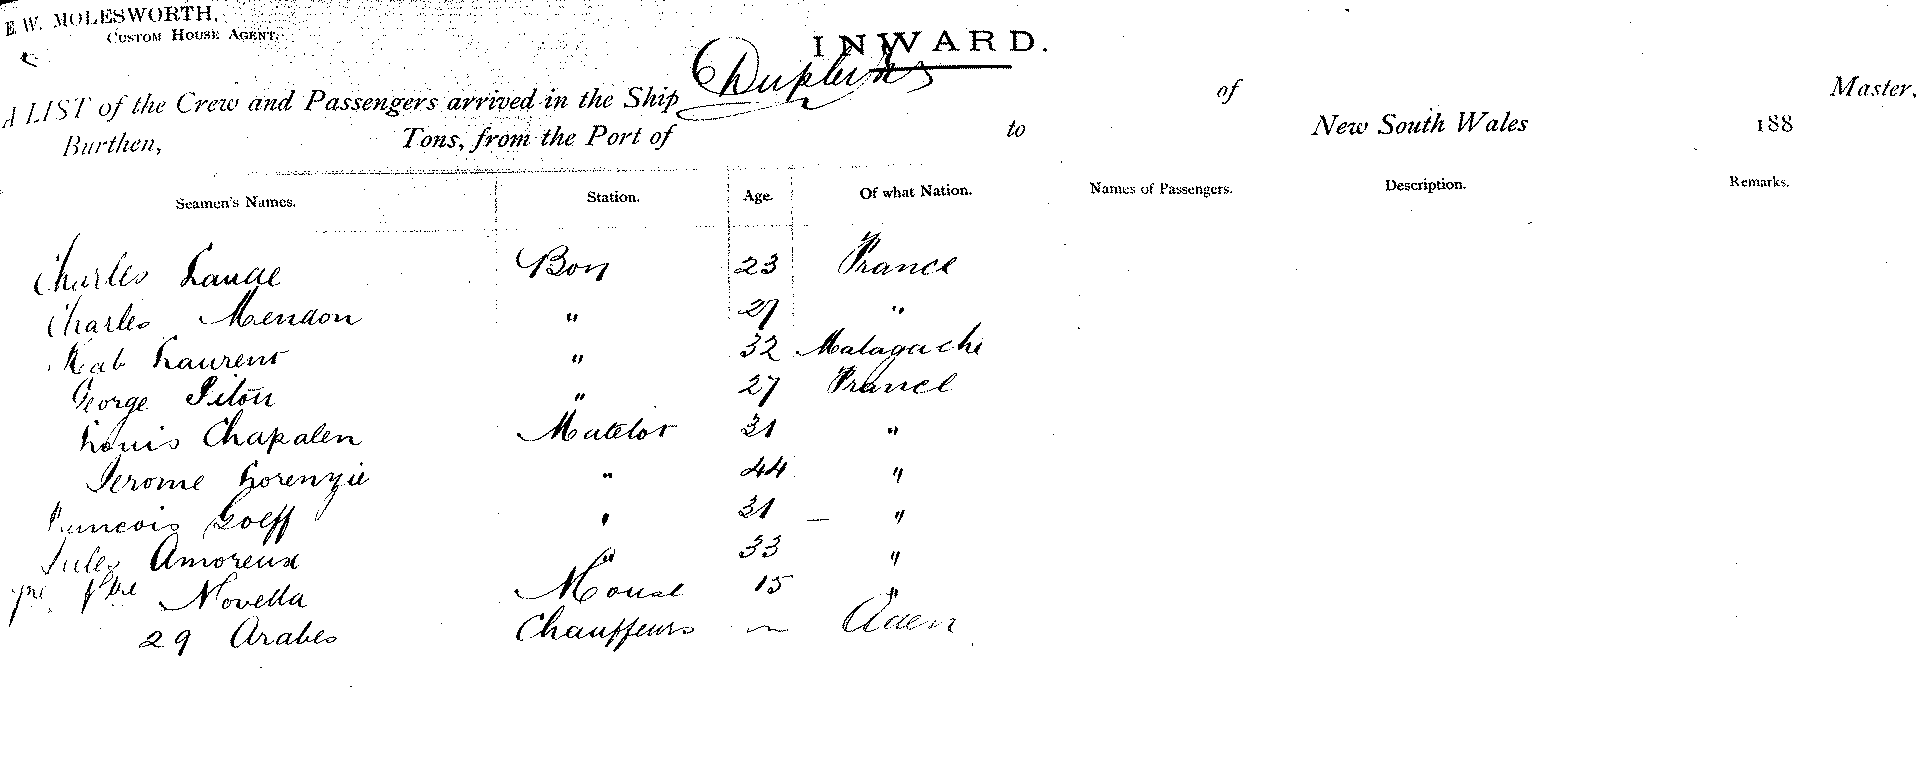 E. W. MOLESWORTH,
CUSTOM HOUSE AGENT.
INWARD.
A LIST of the Crew and Passengers arrived in the Ship Dupleix of Master,
Burthen, Tons, from the Port of to New South Wales 188
Seamen's Names. Station. Age. Of what Nation. Names of Passengers. Description. Remarks.
Charles Laude Boy 23 France
Charles Mendon " 27 "
Rab Laurent " 32 Malagache
George Piton " 27 France
Louis Chapalen Matelot 31 "
Jerome Lorenzie " 44 "
Francois Goeff " 31 — "
Jules Amoreux " 33 "
Novella Mouse 15 "
29 Arabes Chauffeurs — Aden